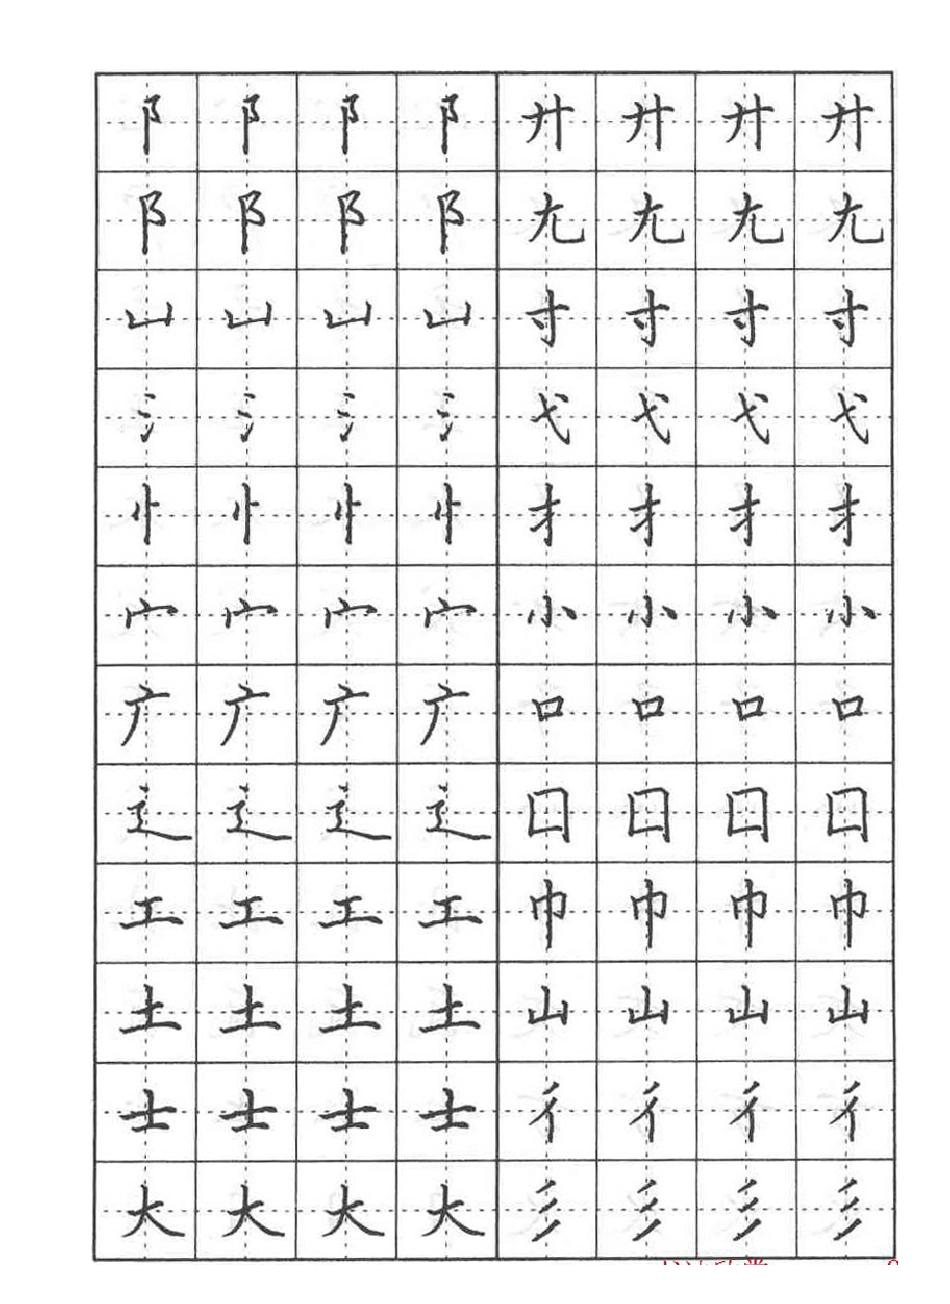 卩 卩 卩 卩 廾 廾 廾 廾
阝 阝 阝 阝 尢 尢 尢 尢
凵 凵 凵 凵 寸 寸 寸 寸
氵 氵 氵 氵 弋 弋 弋 弋
忄 忄 忄 忄 扌 扌 扌 扌
宀 宀 宀 宀 小 小 小 小
广 广 广 广 口 口 口 口
辶 辶 辶 辶 囗 囗 囗 囗
工 工 工 工 巾 巾 巾 巾
土 土 土 土 山 山 山 山
士 士 士 士 彳 彳 彳 彳
大 大 大 大 彡 彡 彡 彡